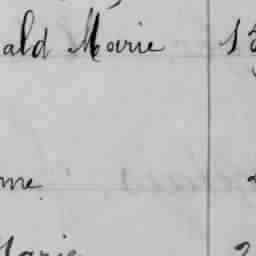 ald Marie 13
me
Marie 2